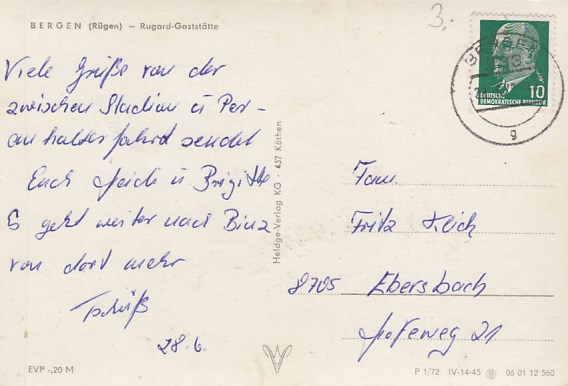 BERGEN (Rügen) — Rugard-Gaststätte
3.
DEUTSCHE
DEMOKRATISCHE REPUBLIK
10
BERGEN
g
Viele Grüße von der
zwischen Stadion u Per-
anhalterfahrt sendet
Euch u Brigitte
Es geht weiter nach Binz
von dort mehr
Tschüß
28.6.
Heldge-Verlag KG 437 Köthen
Fam.
Fritz
8705 Ebersbach
Hofeweg 21
EVP -,20 M
P 1/72 IV-14-45 06 01 12 560